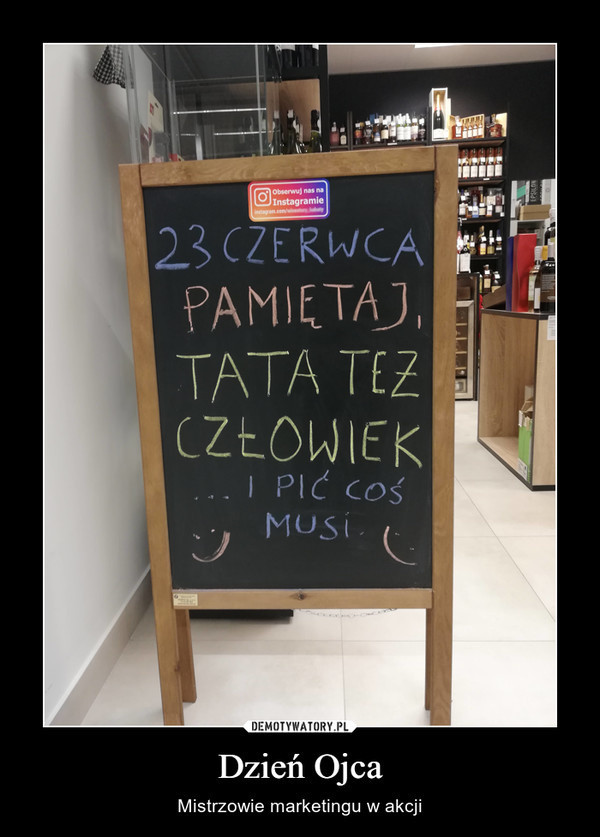 Obserwuj nas na
Instagramie
23 CZERWCA
PAMIĘTAJ,
TATA TEŻ
CZŁOWIEK
... I PIĆ COŚ
MUSI.
DEMOTYWATORY.PL
Dzień Ojca
Mistrzowie marketingu w akcji